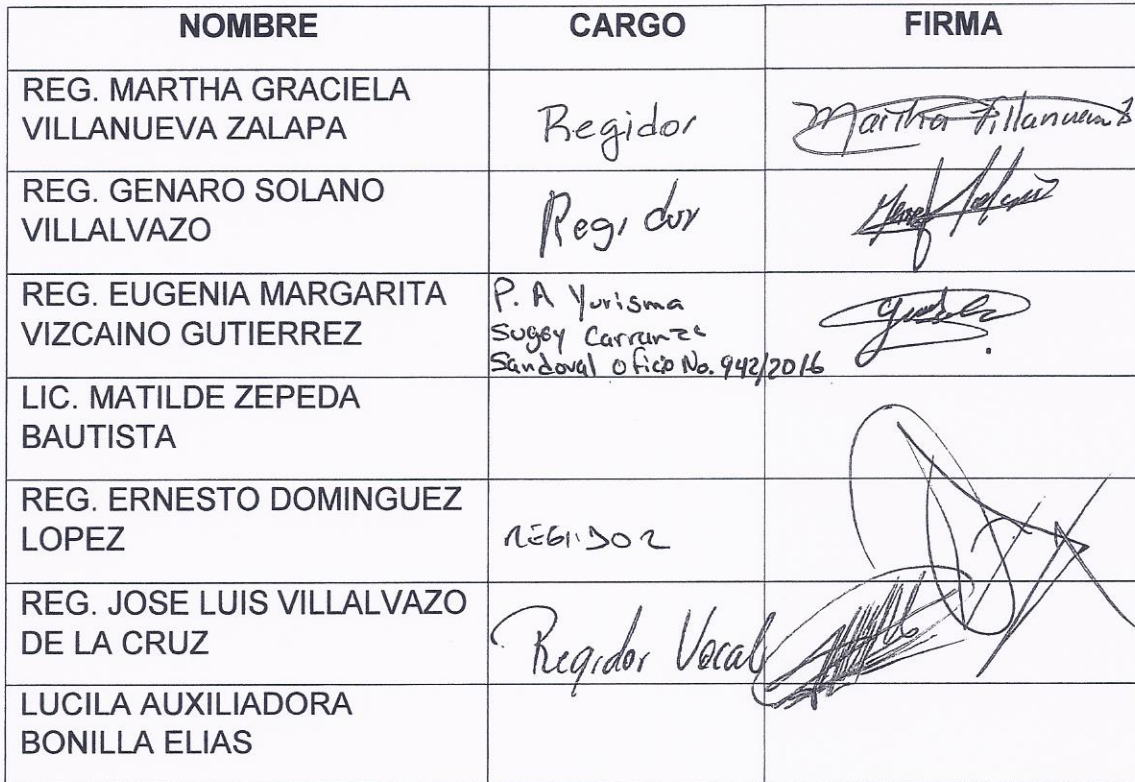 NOMBRE CARGO FIRMA
REG. MARTHA GRACIELA
VILLANUEVA ZALAPA
Regidor
Martha Villanueva Z
REG. GENARO SOLANO
VILLALVAZO
Regidor
REG. EUGENIA MARGARITA
VIZCAINO GUTIERREZ
P. A Yurisma
Sugey Carranza
Sandoval Oficio No. 942/2016
LIC. MATILDE ZEPEDA
BAUTISTA
REG. ERNESTO DOMINGUEZ
LOPEZ
REGIDOR
REG. JOSE LUIS VILLALVAZO
DE LA CRUZ
Regidor Vocal
LUCILA AUXILIADORA
BONILLA ELIAS